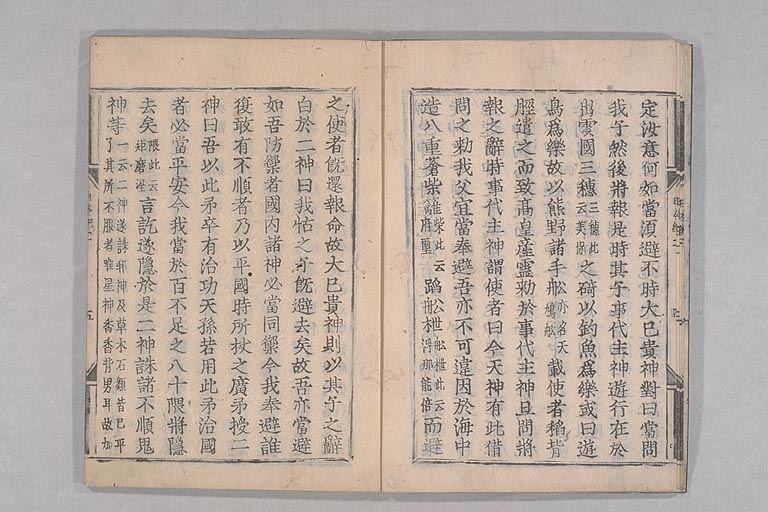 定汝意何如當湏避不時大巳貴神對曰當問
我子然後將報是時其子事代主神遊行在於
出雲國三穗三穗此云美保之碕以釣魚爲樂或曰遊
鳥爲樂故以熊野諸手舩亦名天鴿舩載使者稻背
脛遣之而致髙皇産靈勑於事代主神且問將
報之辭時事代主神謂使者曰今天神有此借
問之勑我父宜當奉避吾亦不可違因於海中
造八重蒼柴籬柴此云府璽蹈舩枻舩枻此云浮那能倍而避
之使者旣還報命故大巳貴神則以其子之辭
白於二神曰我怙之子旣避去矣故吾亦當避
如吾防禦者國内諸神必當同禦今我奉避誰
復敢有不順者乃以平國時所杖之廣矛授二
神曰吾以此矛卒有治功天孫若用此矛治國
者必當平安今我當於百不足之八十隈將隱
去矣隈此云矩磨泥言訖遂隱於是二神誅諸不順鬼
神等一云二神遂誅邪神及草木石類皆巳平了其所不服者唯星神香香背男耳故加
五